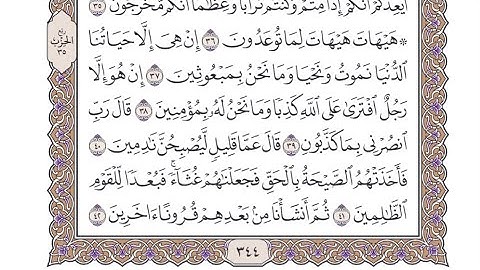 أَيَعِدُكُمْ أَنَّكُمْ إِذَا مِتُّمْ وَكُنتُمْ تُرَابًا وَعِظَٰمًا أَنَّكُم مُّخْرَجُونَ ٣٥
ربع الحزب ٣٥
۞ هَيْهَاتَ هَيْهَاتَ لِمَا تُوعَدُونَ ٣٦ إِنْ هِىَ إِلَّا حَيَاتُنَا
ٱلدُّنْيَا نَمُوتُ وَنَحْيَا وَمَا نَحْنُ بِمَبْعُوثِينَ ٣٧ إِنْ هُوَ إِلَّا
رَجُلٌ ٱفْتَرَىٰ عَلَى ٱللَّهِ كَذِبًا وَمَا نَحْنُ لَهُۥ بِمُؤْمِنِينَ ٣٨ قَالَ رَبِّ
ٱنصُرْنِى بِمَا كَذَّبُونِ ٣٩ قَالَ عَمَّا قَلِيلٍ لَّيُصْبِحُنَّ نَٰدِمِينَ ٤٠
فَأَخَذَتْهُمُ ٱلصَّيْحَةُ بِٱلْحَقِّ فَجَعَلْنَٰهُمْ غُثَآءً ۚ فَبُعْدًا لِّلْقَوْمِ
ٱلظَّٰلِمِينَ ٤١ ثُمَّ أَنشَأْنَا مِنۢ بَعْدِهِمْ قُرُونًا ءَاخَرِينَ ٤٢
٣٤٤